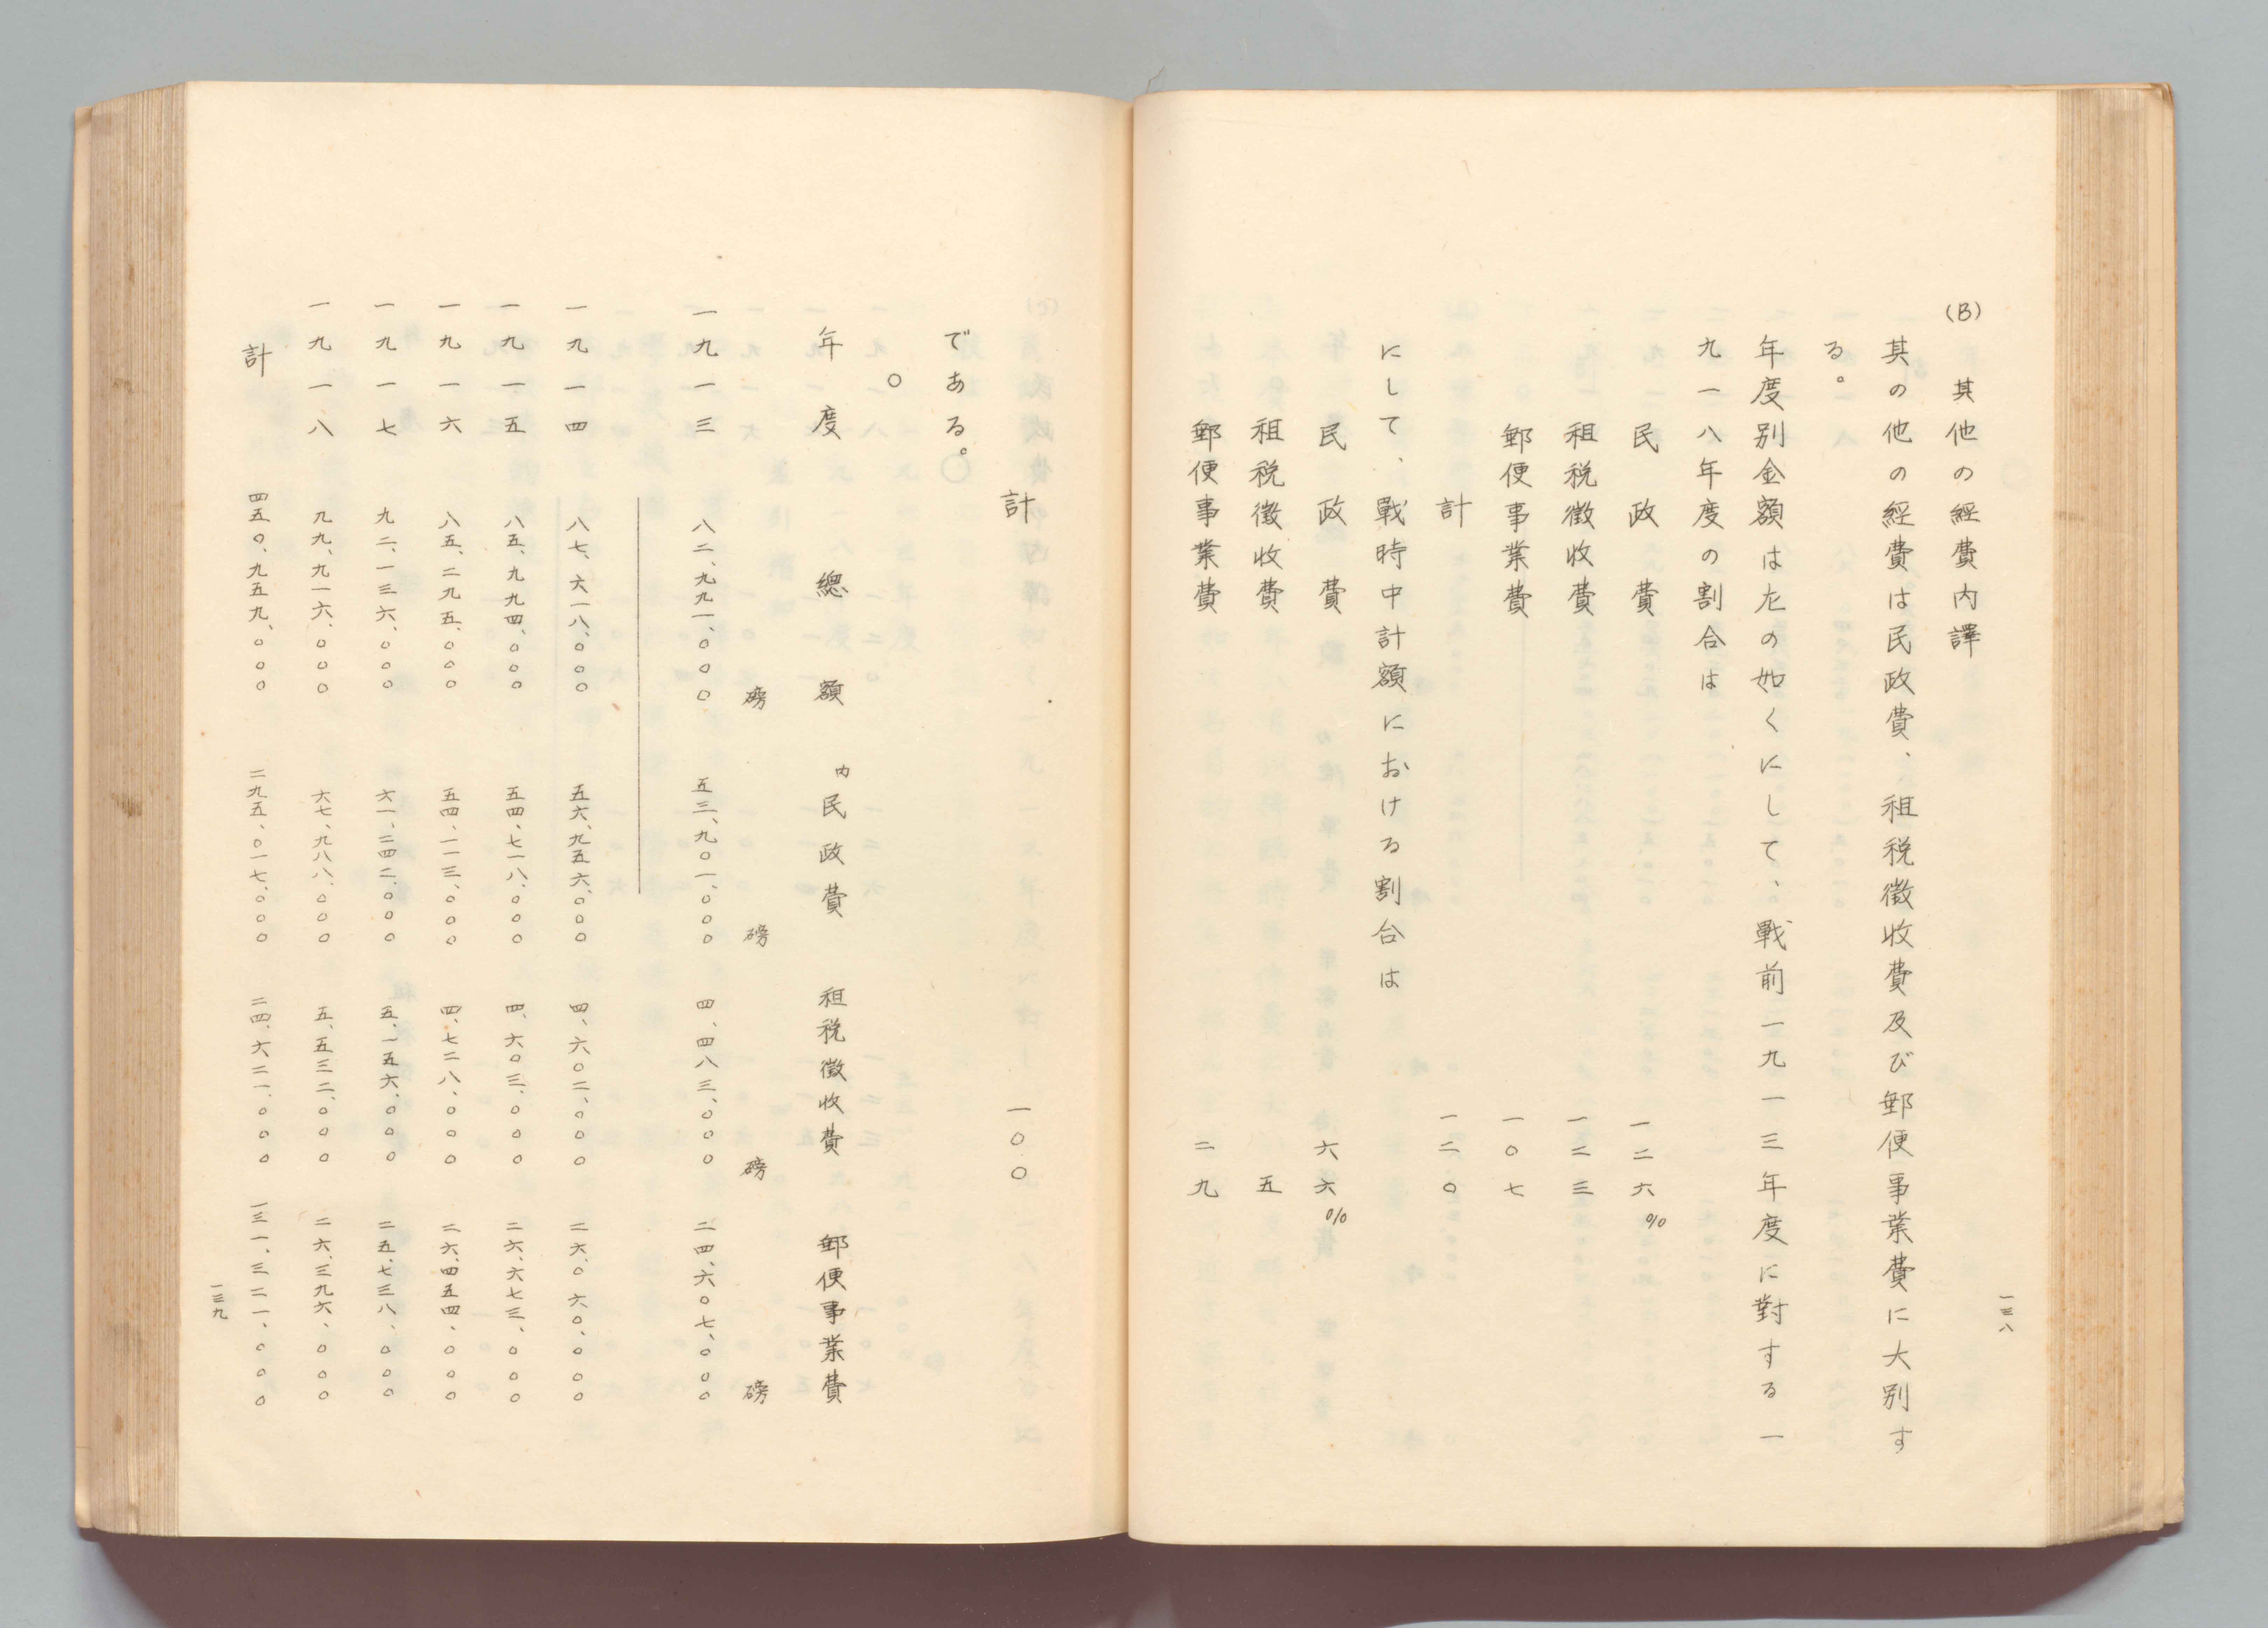 一三八
(B) 其他の經費内譯
其の他の經費は民政費、租税徴收費及び郵便事業費に大別す
る。
年度別金額は左の如くにして、戰前一九一三年度に對する一
九一八年度の割合は
民政費 一二六%
租税徴收費 一二三
郵便事業費 一〇七
計 一二〇
にして、戰時中計額における割合は
民政費 六六%
租税徴收費 五
郵便事業費 二九
計 一〇〇
である。〇
〇
年度 總額 内民政費 租税徴收費 郵便事業費
磅 磅 磅 磅
一九一三 八二、九九一、〇〇〇 五三、九〇一、〇〇〇 四、四八三、〇〇〇 二四、六〇七、〇〇〇
一九一四 八七、六一八、〇〇〇 五六、九五六、〇〇〇 四、六〇二、〇〇〇 二六、〇六〇、〇〇〇
一九一五 八五、九九四、〇〇〇 五四、七一八、〇〇〇 四、六〇三、〇〇〇 二六、六七三、〇〇〇
一九一六 八五、二九五、〇〇〇 五四、一一三、〇〇〇 四、七二八、〇〇〇 二六、四五四、〇〇〇
一九一七 九二、一三六、〇〇〇 六一、二四二、〇〇〇 五、一五六、〇〇〇 二五、七三八、〇〇〇
一九一八 九九、九一六、〇〇〇 六七、九八八、〇〇〇 五、五三二、〇〇〇 二六、三九六、〇〇〇
計 四五〇、九五九、〇〇〇 二九五、〇一七、〇〇〇 二四、六二一、〇〇〇 一三一、三二一、〇〇〇
一三九